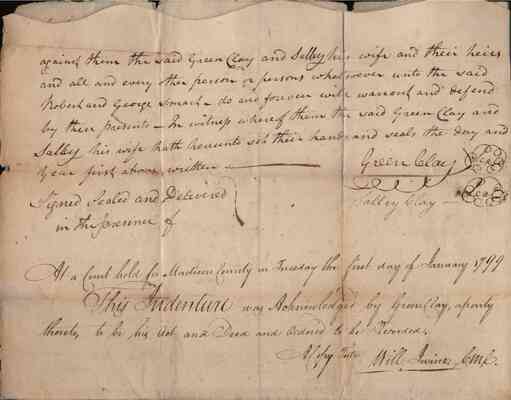 against them the said Green Clay and Salley his wife and their heirs
and all and every other person or persons whatsoever unto the said
Robert and George Smart do and forever will warrant and defend
by these presents - In witness whereof them the said Green Clay and
Salley his wife hath hereunto set their hands and seals the day and
Year first above written
Green Clay Seal
Signed Sealed and Delivered
Salley Clay Seal
in the presence of
At a Court held for Madison County on Tuesday the first day of January 1799
This Indenture was Acknowledged by Green Clay, a party
thereto, to be his Act and Deed and Ordered to be Recorded.
A Copy Teste Will Irvine, CMC.